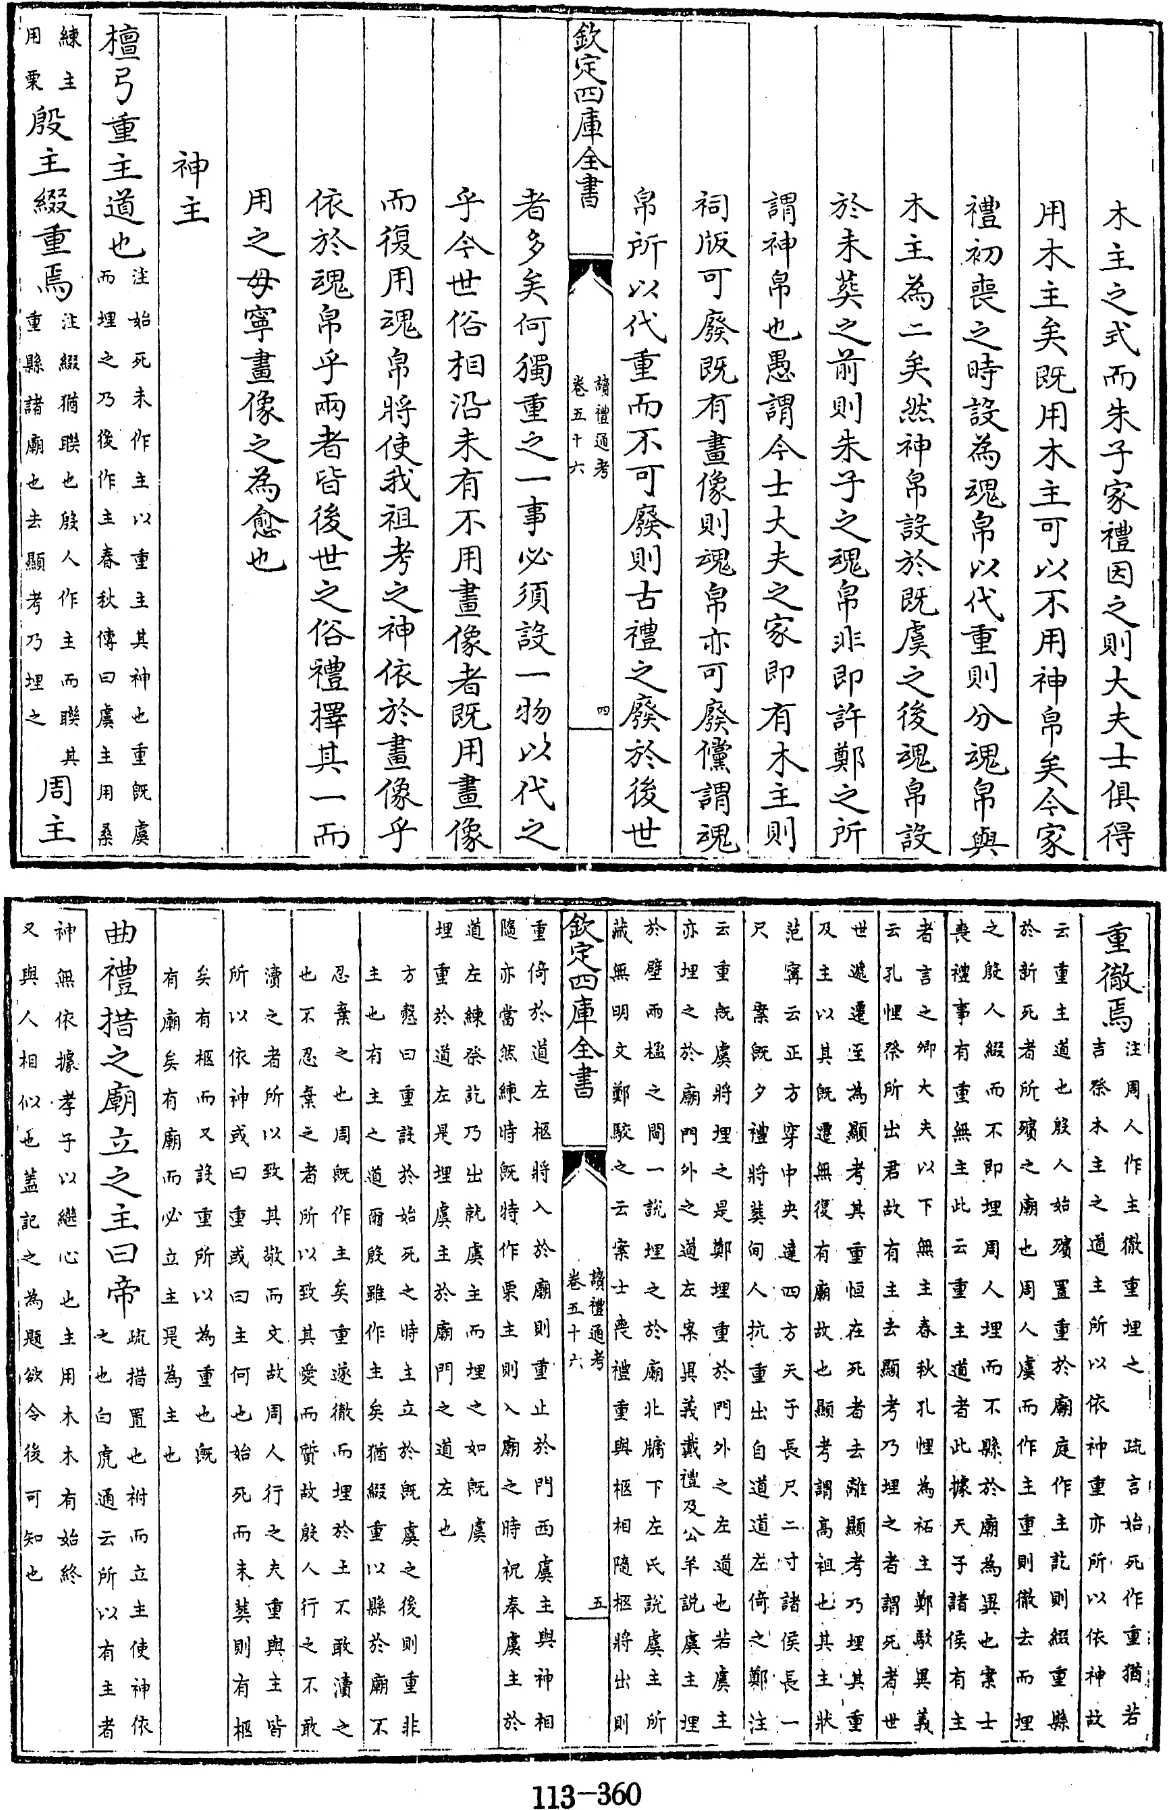 木主之式而朱子家禮因之則大夫士俱得
用木主矣既用木主可以不用神帛矣今家
禮初喪之時設為魂帛以代重則分魂帛與
木主為二矣然神帛設於既虞之後魂帛設
於未葬之前則朱子之魂帛非即許鄭之所
謂神帛也愚謂今士大夫之家即有木主則
祠版可廢既有畫像則魂帛亦可廢儻謂魂
帛所以代重而不可廢則古禮之廢於後世
欽定四庫全書
讀禮通考
卷五十六
四
者多矣何獨重之一事必須設一物以代之
乎今世俗相沿未有不用畫像者既用畫像
而復用魂帛將使我祖考之神依於畫像乎
依於魂帛乎兩者皆後世之俗禮擇其一而
用之毋寧畫像之為愈也
神主
檀弓重主道也
注始死未作主以重主其神也重既虞
而埋之乃後作主春秋傳曰虞主用桑
練主
用栗
殷主綴重焉
注綴猶聯也殷人作主而聯其
重縣諸廟也去顯考乃埋之
周主
重徹焉
注周人作主徹重埋之 疏言始死作重猶若
吉祭木主之道主所以依神重亦所以依神故
云重主道也殷人始殯置重於廟庭作主訖則綴重縣
於新死者所殯之廟也周人虞而作主重則徹去而埋
之殷人綴而不即埋周人埋而不縣於廟為異也案士
喪禮事有重無主此云重主道者此據天子諸侯有主
者言之卿大夫以下無主春秋孔悝為祏主鄭駮異義
云孔悝祭所出君故有主去顯考乃埋之者謂死者世
世遞遷至為顯考其重恒在死者去離顯考乃埋其重
及主以其既遷無復有廟故也顯考謂高祖也其主狀
范寗云正方穿中央達四方天子長尺二寸諸侯長一
尺 案既夕禮將葬甸人抗重出自道道左倚之鄭注
云重既虞將埋之是鄭埋重於門外之左道也若虞主
亦埋之於廟門外之道左案異義戴禮及公羊說虞主埋
於壁兩楹之間一說埋之於廟北牖下左氏說虞主所
藏無明文鄭駮之云案士喪禮重與柩相隨柩將出則
欽定四庫全書
讀禮通考
卷五十六
五
重倚於道左柩將入於廟則重止於門西虞主與神相
隨亦當然練時既特作栗主則入廟之時祝奉虞主於
道左練祭訖乃出就虞主而埋之如既虞
埋重於道左是埋虞主於廟門之道左也
方慤曰重設於始死之時主立於既虞之後則重非
主也有主之道爾殷雖作主矣猶綴重以縣於廟不
忍棄之也周既作主矣重遂徹而埋於土不敢瀆之
也不忍棄之者所以致其愛而質故殷人行之不敢
瀆之者所以致其敬而文故周人行之夫重與主皆
所以依神或曰重或曰主何也始死而未葬則有柩
矣有柩而又設重所以為重也既
有廟矣有廟而必立主是為主也
曲禮措之廟立之主曰帝
疏措置也祔而立主使神依
之也白虎通云所以有主者
神無依據孝子以繼心也主用木木有始終
又與人相似也蓋記之為題欲令後可知也
113-360